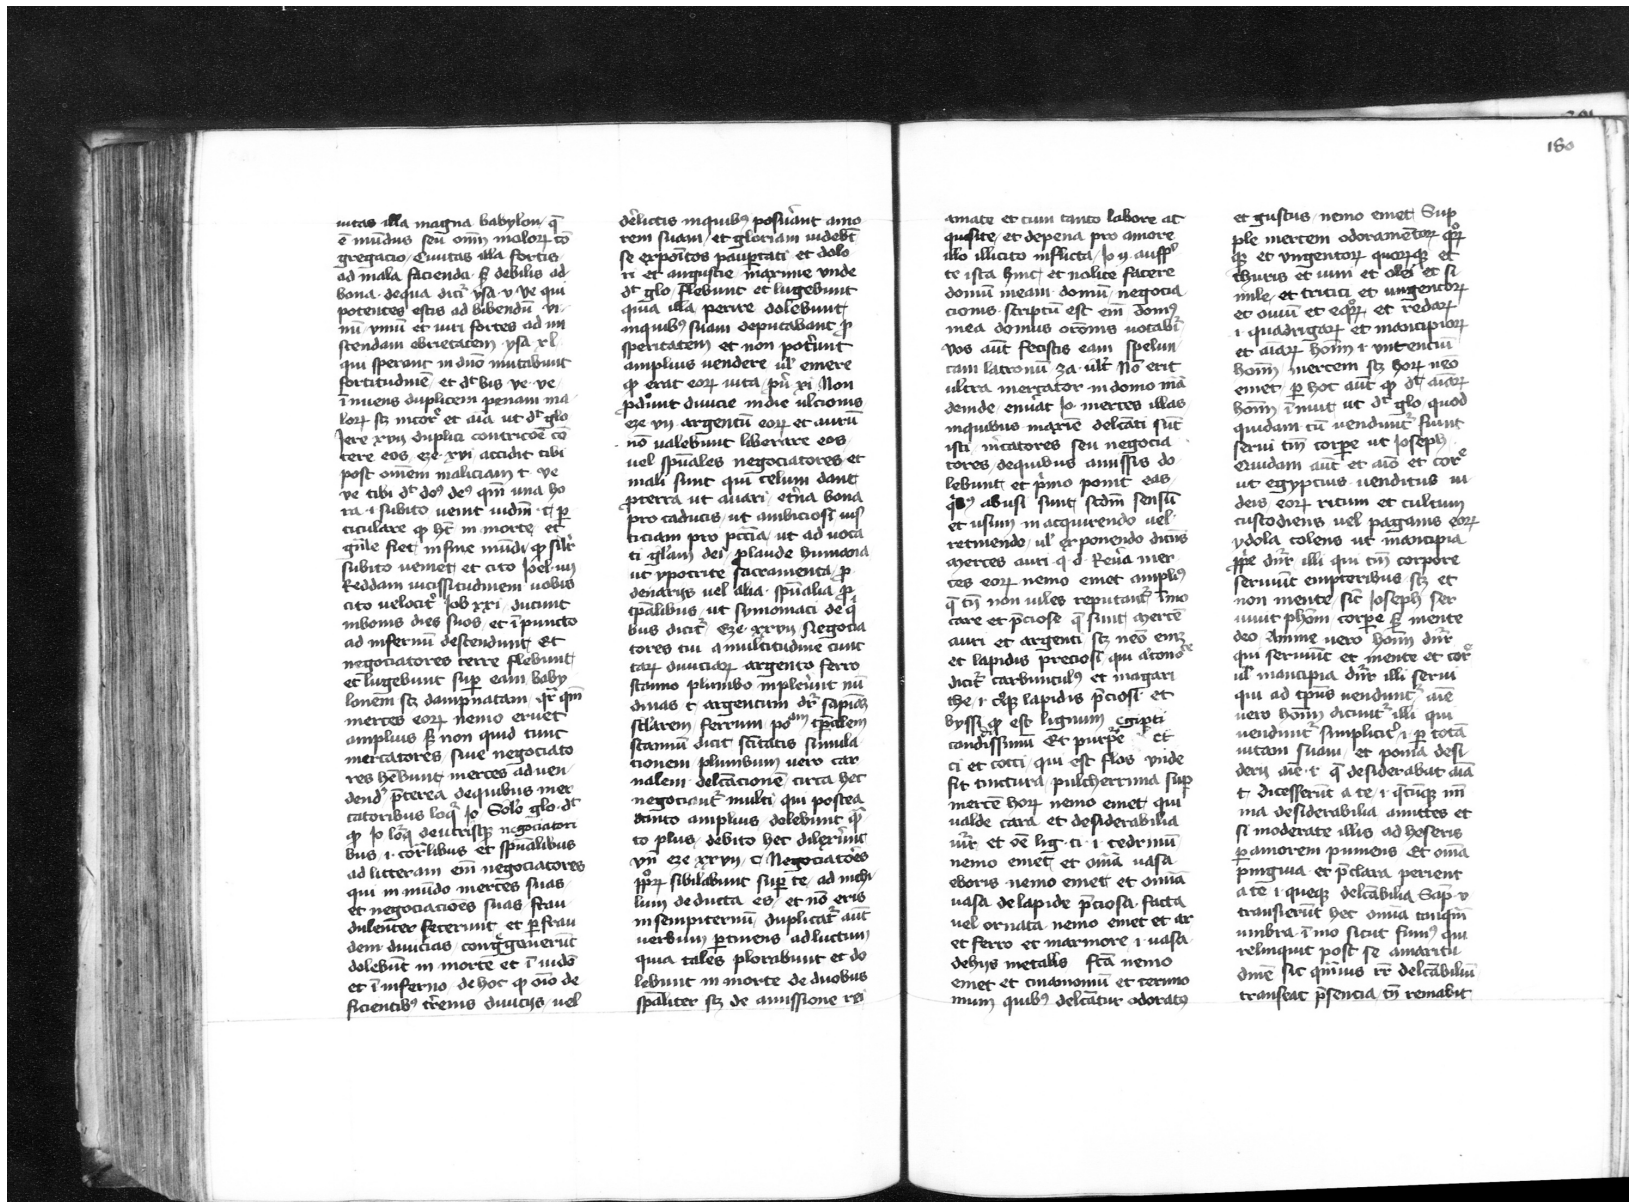 uitas illa magna babylon q̄
ē mūdus seu om̄ maloꝝ cō
gregacio Ciuitas illa fortis
ad mala facienda sꝫ debilis ad
bona de qua dicit᷑ ysa v ve qui
potentes estis ad bibendū vi
nū vinū et viri fortes ad mi
scendam ebrietatem ysa xl
qui sperant in dn̄o mutabunt
fortitudinē et dt bis ve ve
īnuens duplicem penam ma
loꝝ scꝫ et aīa ut dt glo
Jere xvij duplici contricōe cō
tere eos eze xvi accidit tibi
post omēm maliciam t ve
ve tibi dt dos deꝰ qm̄ una ho
ra i subito venit iudm̄ t p̲
ticulare qꝫ ht in morte et
gn̄le fiet in fine mūdi qꝫ silr̄
subito veniet et cito Joel iij
Reddam vicissitudinem vobis
cito velocit᷑ Job xxi ducunt
in bonis dies suos et ī puncto
ad infernū descendunt Et
negociatores terre flebunt
et lugebunt sup̲ eam baby
lonem scꝫ dampnatam qr̄ qm̄
merces eoꝝ nemo emet
amplius sꝫ non quid tunc
mercatores siue negociato
res hēbunt merces ad uen
dendꝰ p̄terea de quibus mer
catoribus loq᷑ Jo Solo glo dt
qꝫ Jo loq᷑ de utrisqꝫ negociatori
bus i cor̄libus et spūalibus
ad litteram eīn negociatores
qui in mūdo merces suas
et negociacōes suas frau
dulēter fecerunt et p̲ frau
dem diuicias congregauerūt
dolebūt in mortē et ī iudō
et ī inferno de hoc qꝫ oīo de
ficientibꝰ tr̄enis diuicijs vel
delictis in quibꝰ posuerant amo
rem suam et gloriam videbt
se expoitos paup̲tati et dolo
ri et angustie maxime vnde
dt glo flebunt et lugebunt
quia illa perire dolebunt
in quibꝰ suam deputabant p̲
speritatem et non poterunt
amplius vendere ul emere
qꝫ erat eoꝝ vita pū xi Non
p̲derunt diuicie in die ulcionis
eze vij argentū eoꝝ et aurū
nō valebunt liberare eos
vel spūales negociatores et
mali sunt qui celum dant
p̲ terra ut auari et̄na bona
pro caducis ut ambiciosi ius
ticiam pro pctīa ut ad uoca
ti gl̄am dei p̲ laude humana
ut ypocrite sacramenta p̲
denarijs vel alia spūalia p̲
tp̄alibus ut symoniaci de q̄
bus dicit᷑ Eze xxvij Negocia
tores tui a multitudine cunc
taꝝ diuiciaꝝ argento ferro
stanno plumbo impleuūt nū
dinas t argentum dr̄ sapiaꝫ
sclarem ferrum pōam tp̄alem
stannū dicit sc̄itatis simula
cionem plumbum vero car
nalem delc̄acionē circa hec
negociant᷑ multi qui postea
tanto amplius dolebunt q̄
to plus debito hec dilexerīnt
vn̄ eze xxvij t Negociatores
pp̲loꝝ sibilabunt sup̲ te ad nichi
lum deducta es et nō eris
in sempiternū duplicat᷑ aūt
uerbum p̲tinens ad luctum
quia tales plorabunt et do
lebunt in morte de duobus
sp̄aliter scꝫ de amissione rei
amate et cum tanto labore ac
quisite et de pena pro amore
illo illicito inflicta Jo ij auffer
te ista hinc et nolite facere
domū meam domū negocia
cionis scriptū est eīm domꝰ
mea domus or̄onis uocabit᷑
vos aūt fecistis eam spelun
cam latronū za ult᷑ Nō erit
ultra mercator in domo mā
deinde enuāt Jo merces illas
in quibus maxīe delc̄ati sūt
isti mercatores seu negocia
tores de quibus amissis do
lebunt et pīmo ponit eas
qībꝰ abusi sunt scdm̄ sensū
et usum in acquirendo vel
retinendo ul exponendo dicens
merces auri q d Reūā mer
ces eoꝝ nemo emet ampliꝰ
q̄ tn̄ non viles reputant᷑ īmo
care et p̄ciose q̄ sunt mercē
auri et argenti scꝫ neō emꝫ
et lapidis preciosi qui
dicit᷑ carbunculꝰ et magari
the i lapidis p̄ciosi et
byssi qꝫ est lignum egipti
candidissimū Et purp̲e et
ci et cocci qui est flos vnde
fit tinctura pulcherrima sup̲
mercē hoꝝ nemo emet qui
valde cara et desiderabilia
et ōe lig ti i cedrinū
nemo emet et oīnia vasa
eboris nemo emet et omīa
vasa de lapide p̄ciosa facta
vel ornata nemo emet et ar
et ferro et marmore i vasa
de hijs metallis fc̄ā nemo
emet et cinamomū et cenno
mum quibꝰ delc̄antur odoratꝰ
180
et gustus nemo emet Sup
ple mercem odoramentoꝝ
et vngentoꝝ quoꝝqꝫ et
thuris et uini et olei et si
mile et tritici et ungentoꝝ
et ouiū et equoꝝ et redaꝝ
i quadrigaꝝ et mancipioꝝ
et aīaꝝ hoīm i vntenciū
hoīm mercem scꝫ hoꝝ neō
emet p̲ hoc aūt qꝫ dt aīaꝝ
hoīm īnuit ut dt glo quod
quidam cū vendunt᷑ fiunt
serui tm̄ corp̲e ut Joseph
Quidam aūt et aīo et core
ut egyptius venditus iu
deis eoꝝ ritum et cultum
custodiens vel paganis eoꝝ
ydola colens ut mancipia
pp̲e dn̄r illi qui tm̄ corpore
seruiūt emptoribus scꝫ et
non mente sic̄ Joseph ser
uiuit phōni corp̲e sꝫ mente
deo Anime vero hoīm dn̄r
qui seruiūt et mente et cor̄
ul mancipia dn̄r illi serui
qui ad tp̄us vendunt᷑ aīe
vero hoīm dicunt᷑ illi qui
vendunt᷑ simplicit᷑ i p̲ totā
vitam suam et poma desi
derij aīe i q̄ desiderabat aīa
t dicesserūt a te i q̄cūqꝫ
ma desiderabilia amittes et
si moderate illis ad heseris
p̲ amorem pumens Et oīna
pinguia et p̄clara perient
a te i queqꝫ delc̄abilia Sap̲ v
transierūt hec omīa tanqm̄
umbra īmo sicut fumꝰ qui
relinquit post se amaritu
dinē sic qm̄uis rē delc̄abiliū
transeat p̄sencia tn̄ remabit